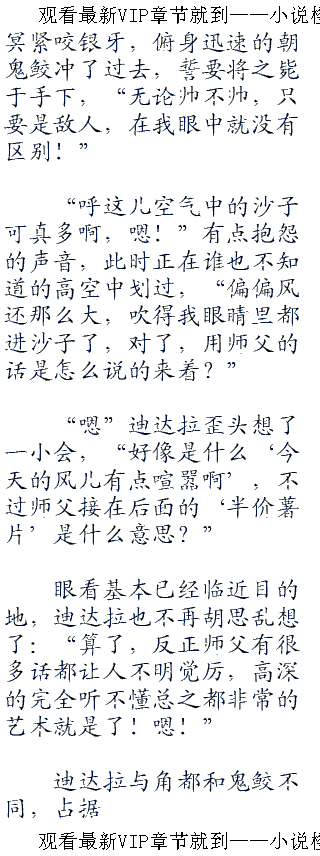 观看最新VIP章节就到——小说检
冥紧咬银牙，俯身迅速的朝
鬼鲛冲了过去，誓要将之毙
于手下，“无论帅不帅，只
要是敌人，在我眼中就没有
区别！”
“呼这儿空气中的沙子
可真多啊，嗯！”有点抱怨
的声音，此时正在谁也不知
道的高空中划过，“偏偏风
还那么大，吹得我眼睛里都
进沙子了，对了，用师父的
话是怎么说的来着？”
“嗯”迪达拉歪头想了
一小会，“好像是什么‘今
天的风儿有点喧嚣啊’，不
过师父接在后面的‘半价薯
片’是什么意思？”
眼看基本已经临近目的
地，迪达拉也不再胡思乱想
了：“算了，反正师父有很
多话都让人不明觉厉，高深
的完全听不懂总之都非常的
艺术就是了！嗯！”
迪达拉与角都和鬼鲛不
同，占据
观看最新VIP章节就到——小说检